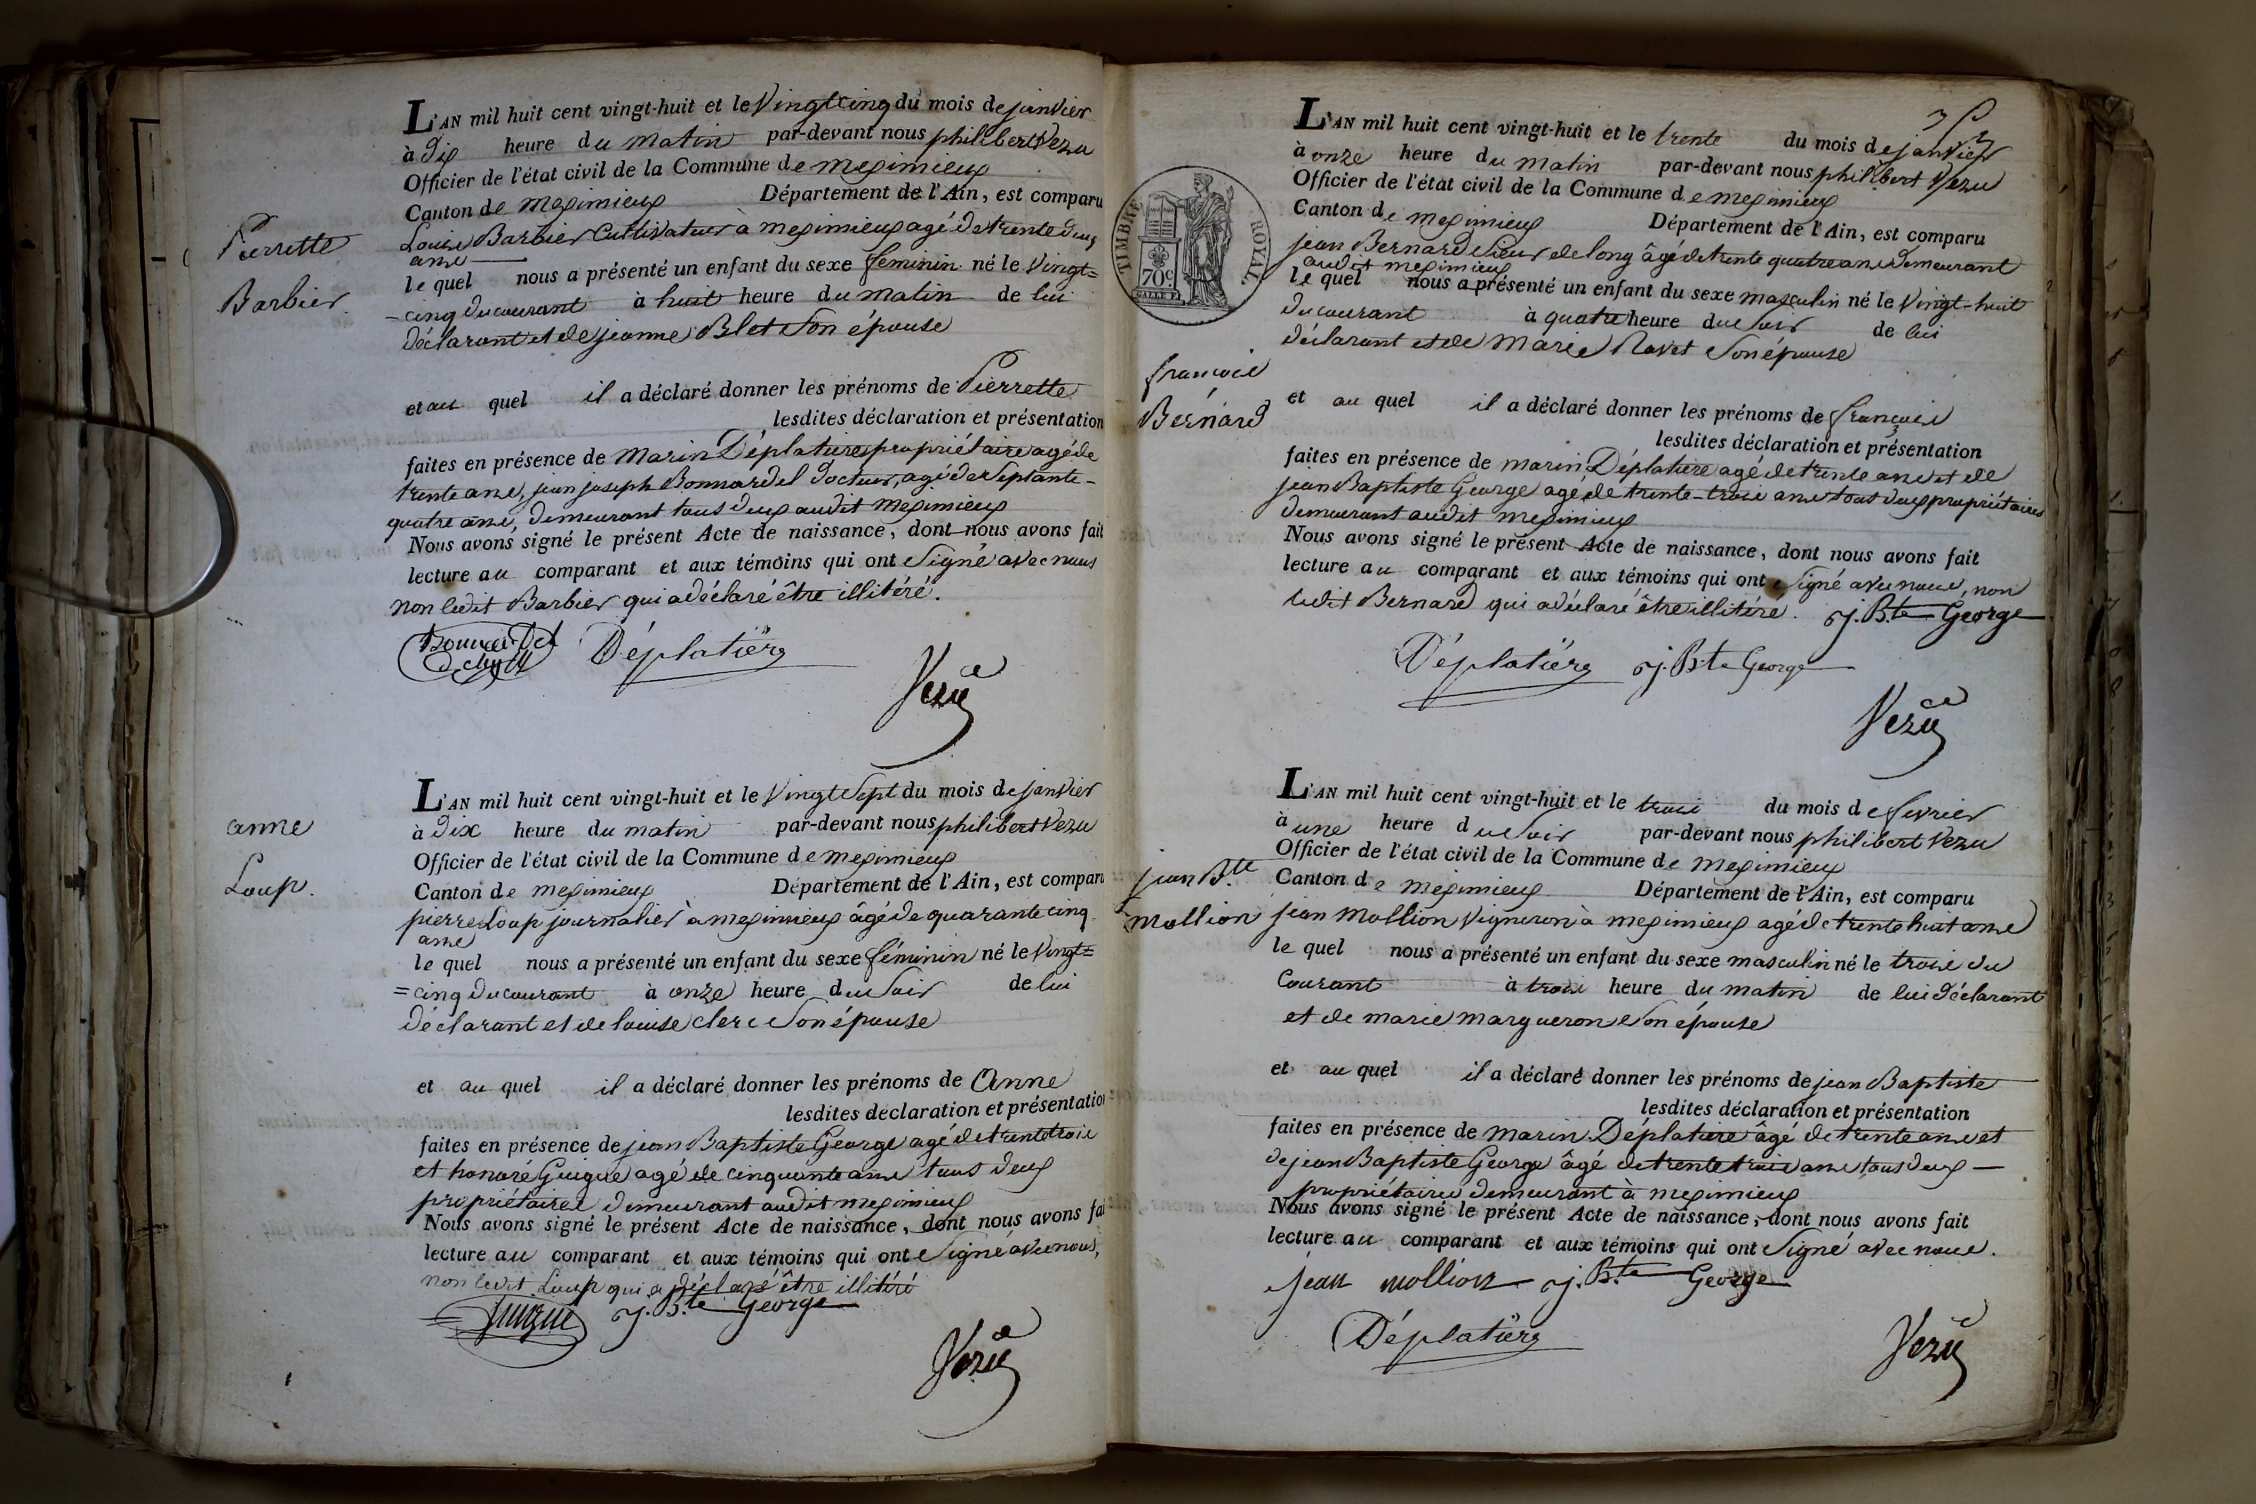 Pierrette
Barbier.
L'AN mil huit cent vingt-huit et le Vingtcinq du mois de janvier
à dix heure du matin par-devant nous philibert Vezu
Officier de l'état civil de la Commune de meximieux
Canton de meximieux Département de l'Ain, est comparu
Louis Barbier Cultivateur à meximieux agé de trente deux
ans
le quel nous a présenté un enfant du sexe féminin né le Vingt=
-cinq du courant à huit heure du matin de lui
déclarant et de jeanne Blet son épouse
et au quel il a déclaré donner les prénoms de Pierrette
lesdites déclaration et présentation
faites en présence de marin Déplature propriétaire agé de
trente ans, jean joseph Bonnardel docteur, agé de septante-
quatre ans, demeurant tous deux audit meximieux
Nous avons signé le présent Acte de naissance, dont nous avons fait
lecture au comparant et aux témoins qui ont signé avec nous
non ledit Barbier qui a déclaré être illitéré.
Déplatière
Vezu
anne
Loup.
L'AN mil huit cent vingt-huit et le Vingt sept du mois de janvier
à dix heure du matin par-devant nous philibert Vezu
Officier de l'état civil de la Commune de meximieux
Canton de meximieux Département de l'Ain, est comparu
pierre Loup journalier à meximieux âgé de quarante cinq
ans
le quel nous a présenté un enfant du sexe féminin né le Vingt=
=cinq du courant à onze heure du soir de lui
déclarant et de louise clerc son épouse
et au quel il a déclaré donner les prénoms de Anne
lesdites déclaration et présentation
faites en présence de jean Baptiste George agé de trente trois
et honoré Guigue agé de cinquante ans tous deux
propriétaires demeurant audit meximieux
Nous avons signé le présent Acte de naissance, dont nous avons fai
lecture au comparant et aux témoins qui ont signé avec nous,
non ledit Loup qui a déclaré être illitéré
Guigue j. Bte George
Vezu
TIMBRE ROYAL
70c
françois
Bernard
L'AN mil huit cent vingt-huit et le trente du mois de janvier
à onze heure du matin par-devant nous philibert Vezu
Officier de l'état civil de la Commune de meximieux
Canton de meximieux Département de l'Ain, est comparu
jean Bernard sieur de long âgé de trente quatre ans demeurant
audit meximieux
le quel nous a présenté un enfant du sexe masculin né le Vingt-huit
du courant à quatre heure du soir de lui
déclarant et de Marie Ravet son épouse
et au quel il a déclaré donner les prénoms de françois
lesdites déclaration et présentation
faites en présence de marin Déplature agé de trente ans et de
jean Baptiste George agé de trente-trois ans tous deux propriétaires
demeurant audit meximieux
Nous avons signé le présent Acte de naissance, dont nous avons fait
lecture au comparant et aux témoins qui ont signé avec nous, non
ledit Bernard qui a déclaré être illitéré. j. Bte George
Déplatière j. Bte George
Vezu
jean Bte
Mollion
L'AN mil huit cent vingt-huit et le trois du mois de fevrier
à une heure du soir par-devant nous philibert Vezu
Officier de l'état civil de la Commune de meximieux
Canton de meximieux Département de l'Ain, est comparu
jean Mollion Vigneron à meximieux agé de trente huit ans
le quel nous a présenté un enfant du sexe masculin né le trois du
Courant à trois heure du matin de lui déclarant
et de marie margueron son épouse
et au quel il a déclaré donner les prénoms de jean Baptiste
lesdites déclaration et présentation
faites en présence de marin Déplature âgé de trente ans et
de jean Baptiste George âgé de trente trois ans tous deux —
propriétaires demeurant à meximieux
Nous avons signé le présent Acte de naissance, dont nous avons fait
lecture au comparant et aux témoins qui ont signé avec nous.
jean mollion j. Bte George
Déplatière
Vezu